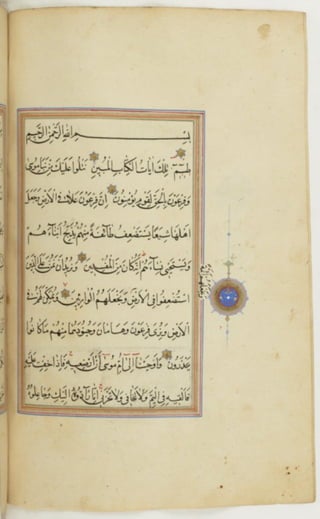 بسم الله الرحمن الرحيم
طسم تلك ايات الكتاب المبين نتلوا عليك من نبا موسى
وفرعون بالحق لقوم يؤمنون ان فرعون علا في الارض وجعل
اهلها شيعا يستضعف طائفة منهم يذبح ابناءهم
ويستحيي نساءهم انه كان من المفسدين ونريد ان نمن على الذين
استضعفوا في الارض ونجعلهم ائمة ونجعلهم الوارثين ونمكن لهم في
الارض ونري فرعون وهامان وجنودهما منهم ما كانوا
يحذرون واوحينا الى ام موسى ان ارضعيه فاذا خفت عليه
فالقيه في اليم ولا تخافي ولا تحزني انا رادوه اليك وجاعلوه